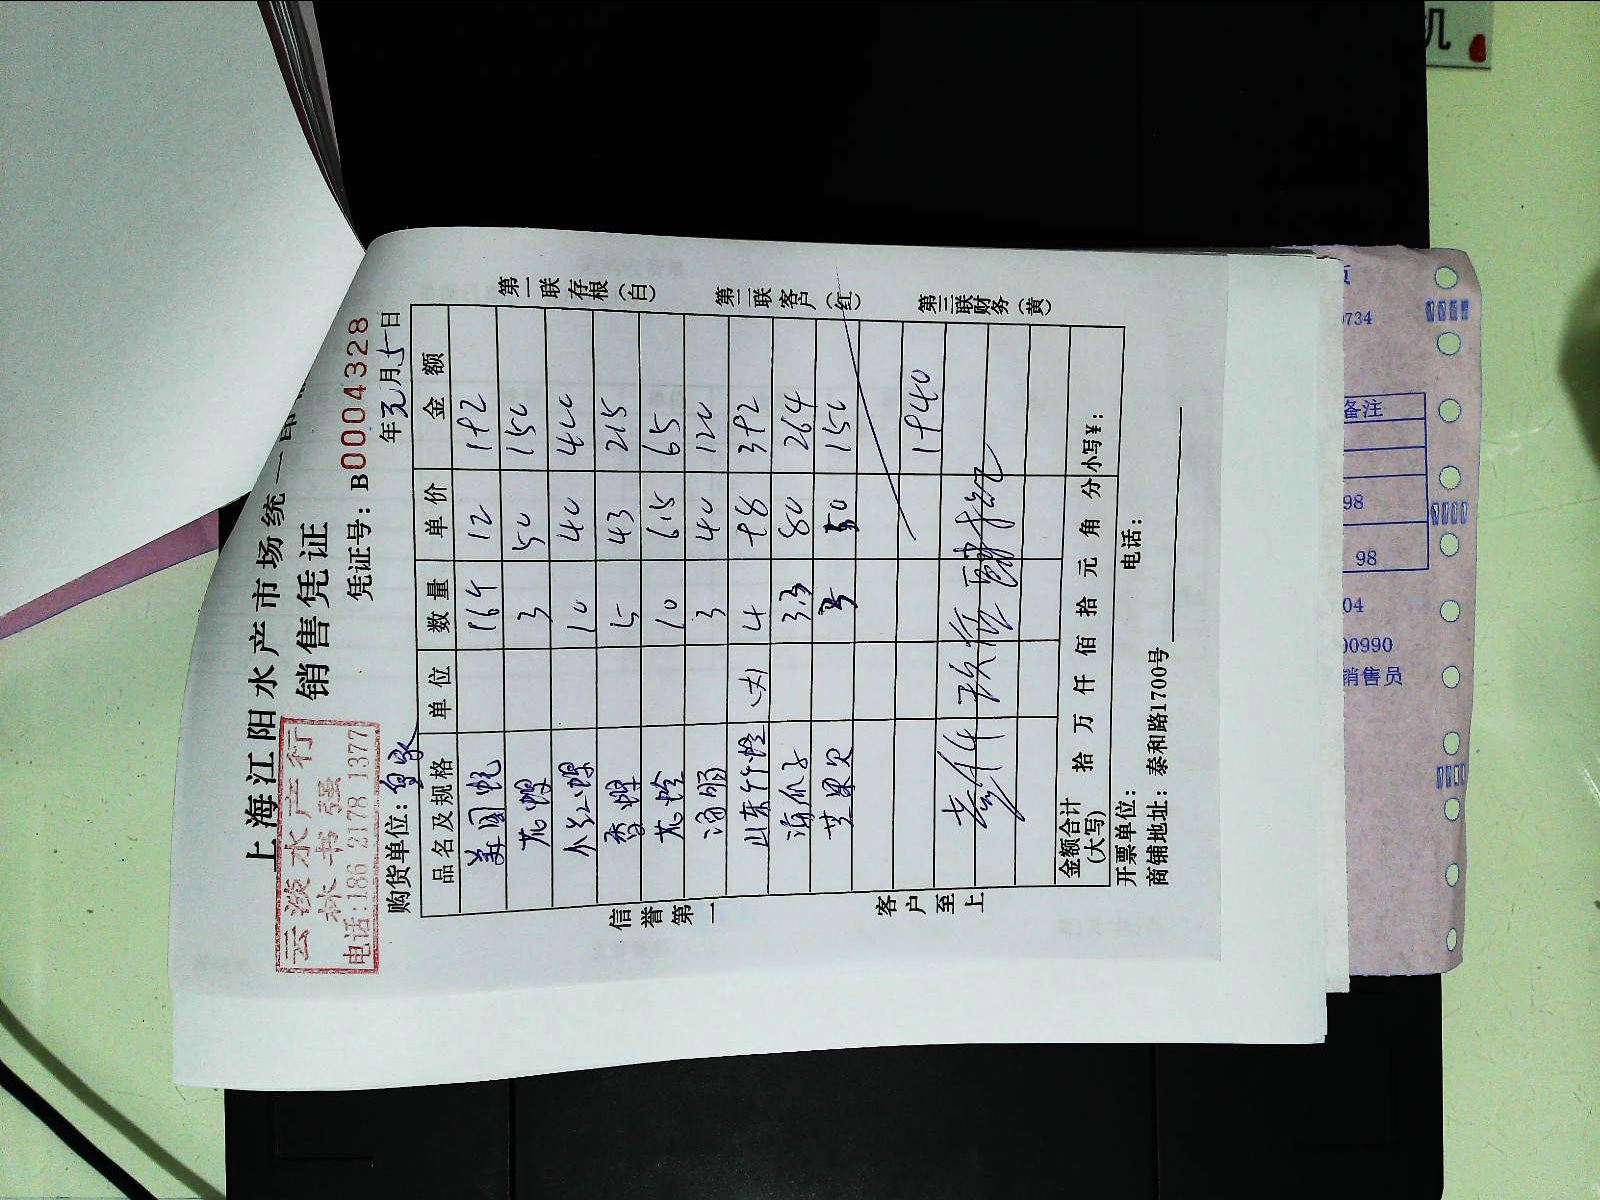 上海江阳水产市场统一
销售凭证
云波水产行
林书强
电话:186 2178 1377
凭证号：B0004328
购货单位： 年元月5日
品名及规格 单位 数量 单价 金额
美国 164 12
花螺 3 50 150
10 40 400
香螺 5 43 215
花蛤 10 6.5 65
3 40 120
山东竹蛏 4 98 392
海瓜子 3.3 80 264
芝果贝 3 50 150
1940
金额合计(大写) 拾 万 仟 佰 拾 元 角 分 小写¥：
开票单位： 电话：
商铺地址：泰和路1700号
信誉第一 客户至上
第一联存根（白） 第二联客户（红） 第三联财务（黄）
机
734
备注
98
98
04
00990
销售员